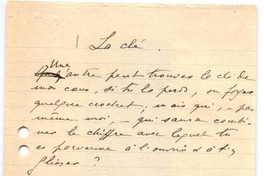 La clé.
Une
autre peut trouver la clé de
mon cave, si tu la perds, ou forger
quelque crochet; mais qui, – pas
même moi, – qui saura combi-
ner le chiffre avec lequel tu
es parvenue à l'ouvrir et à t'y
glisser?